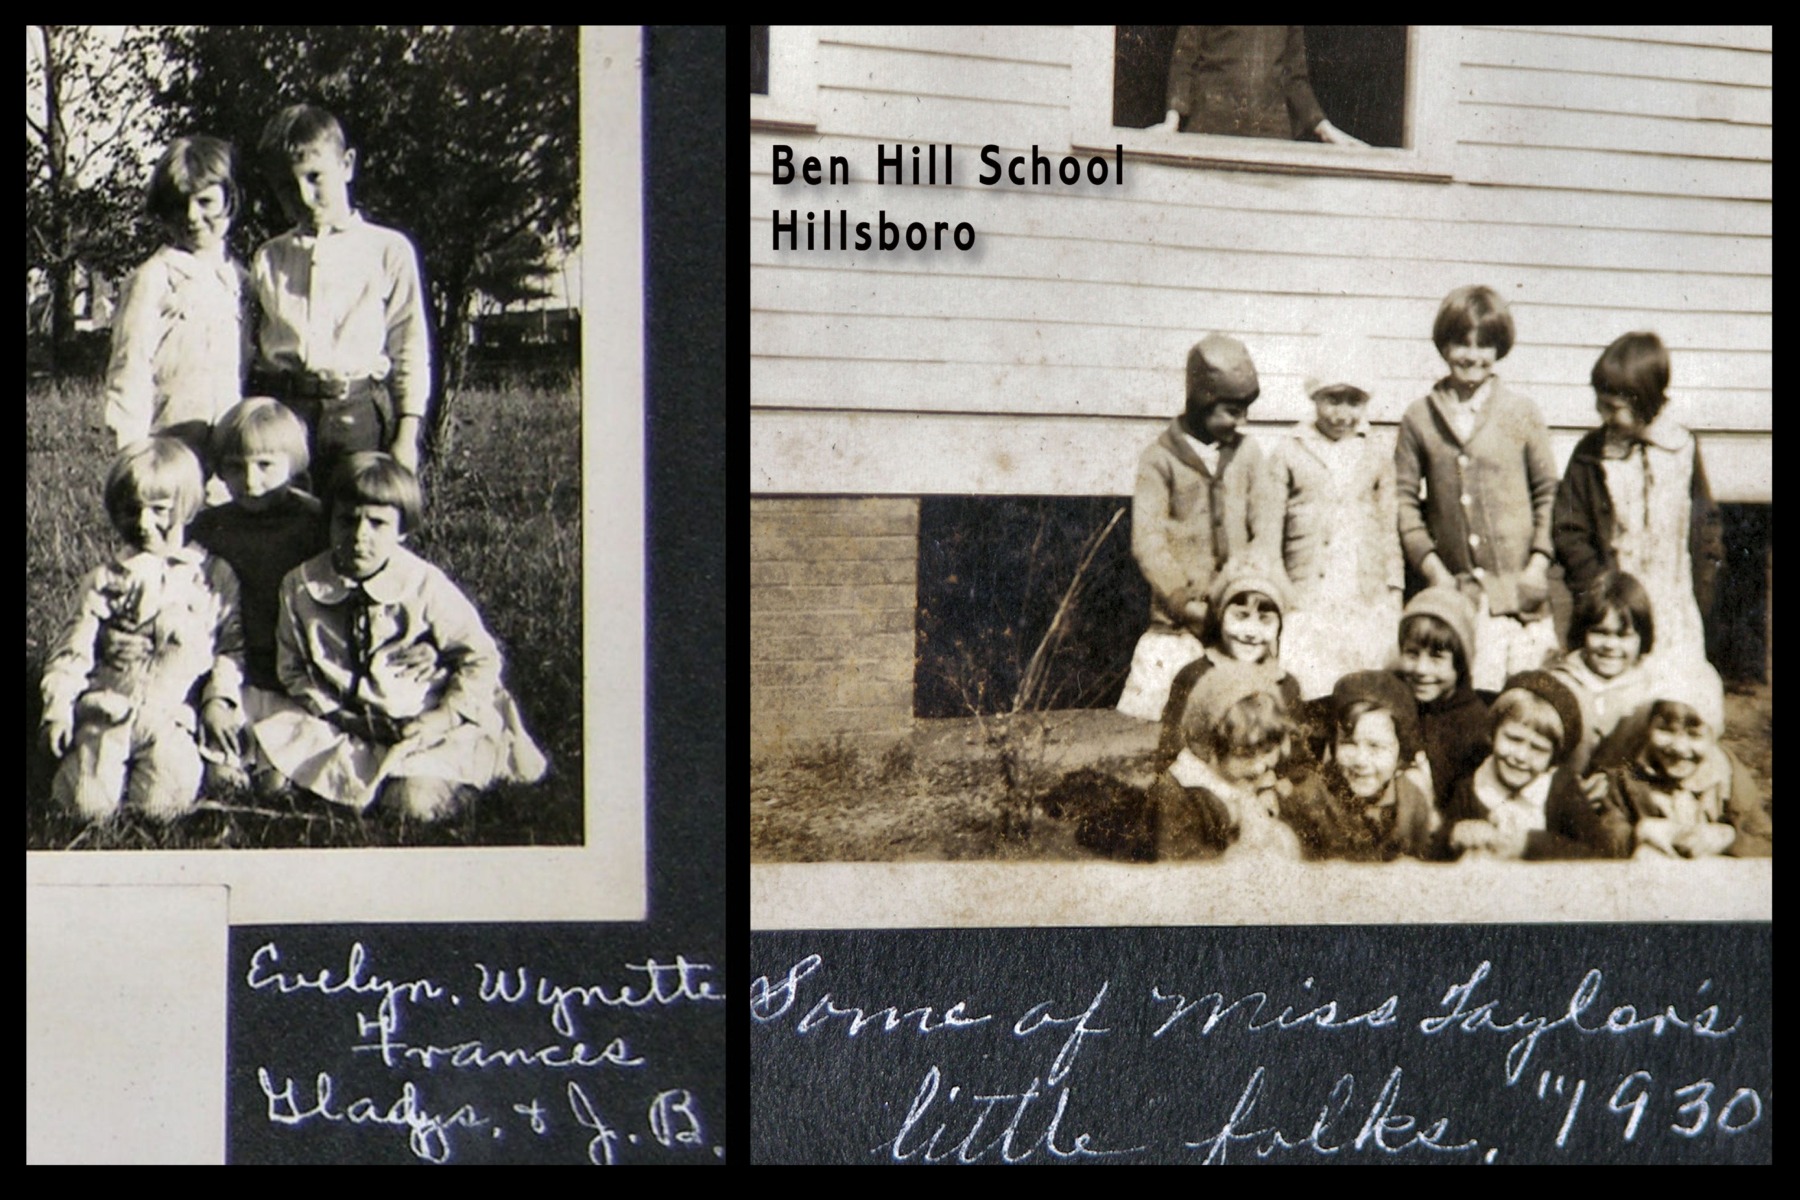 Evelyn. Wynette
Frances
Gladys. + J. B.
Ben Hill School
Hillsboro
Some of Miss Taylor's
little folks. "1930